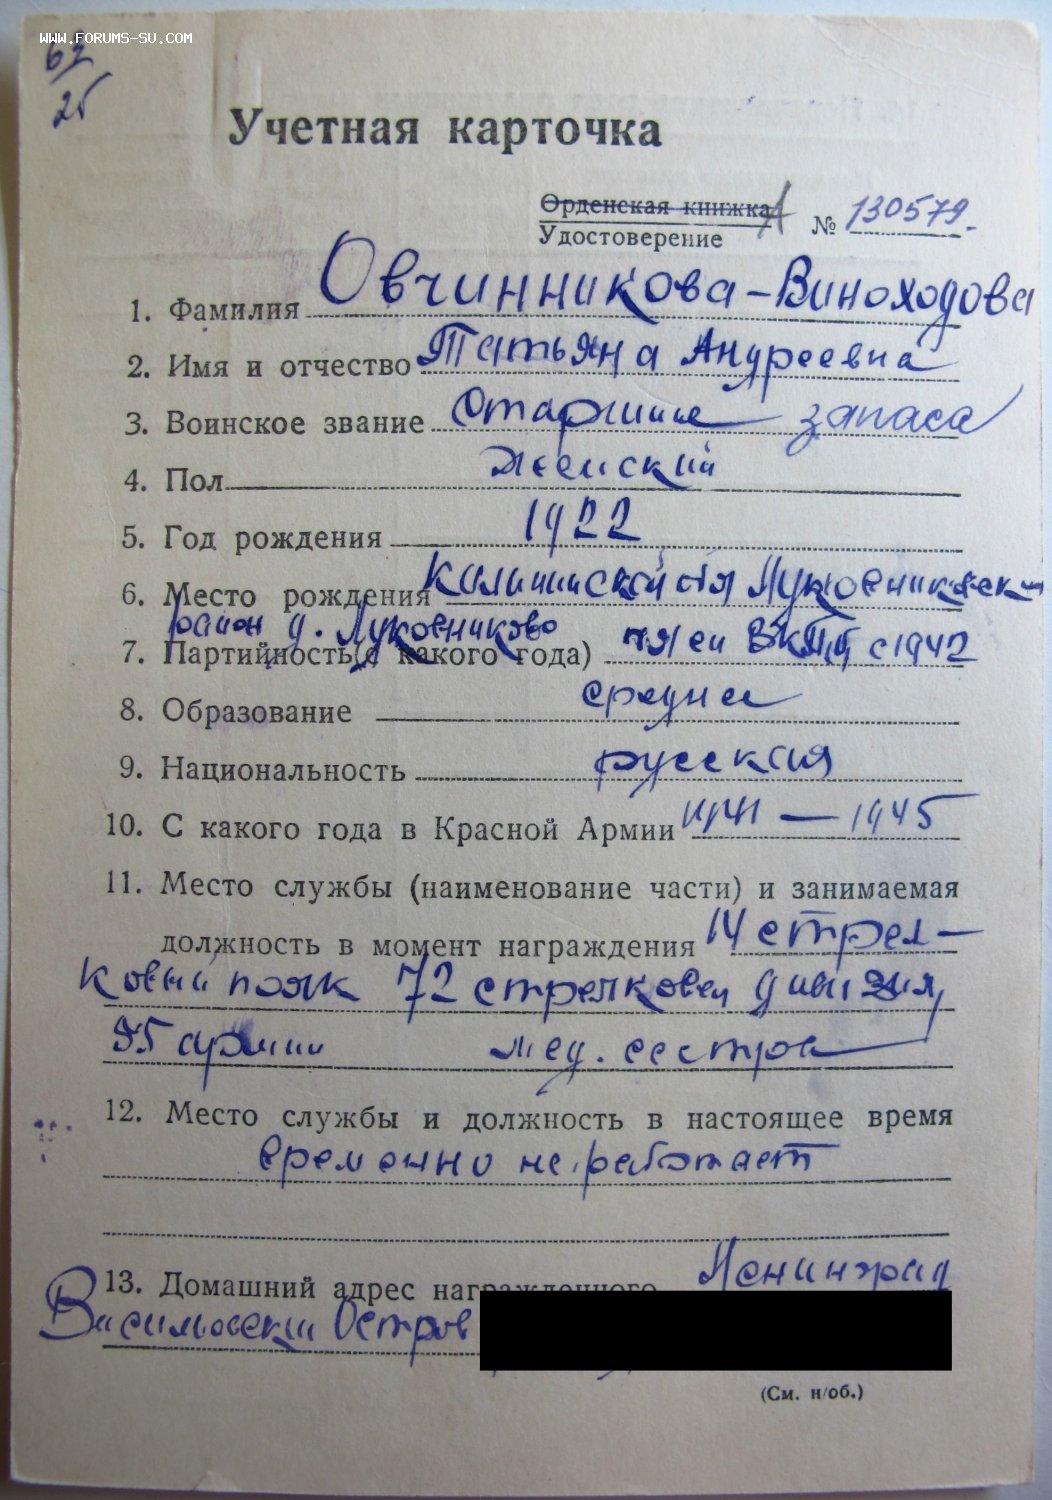 www.forums-su.com
62
25
Учетная карточка
Орденская книжка
Удостоверение А № 130579.
1. Фамилия Овчинникова-Виноходова
2. Имя и отчество Татьяна Андреевна
3. Воинское звание запаса
4. Пол Женский
5. Год рождения 1922
6. Место рождения Калининской Луковниковск
район д. Луковниково
7. Партийность (с какого года) с 1942
8. Образование среднее
9. Национальность русская
10. С какого года в Красной Армии 1941 — 1945
11. Место службы (наименование части) и занимаемая
должность в момент награждения 14 стрел-
ковый полк 72 стрелковой дивизия,
армии мед. сестра
12. Место службы и должность в настоящее время
временно не работает
13. Домашний адрес награжденного Ленинград
Васильевский Остров
(См. н/об.)